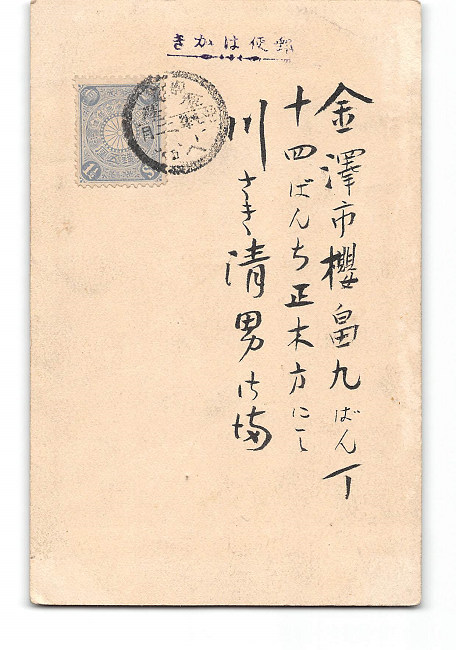 きかは便郵
金澤市櫻畠九ばん丁
十四ばんち正木方にて
川さき清男さま